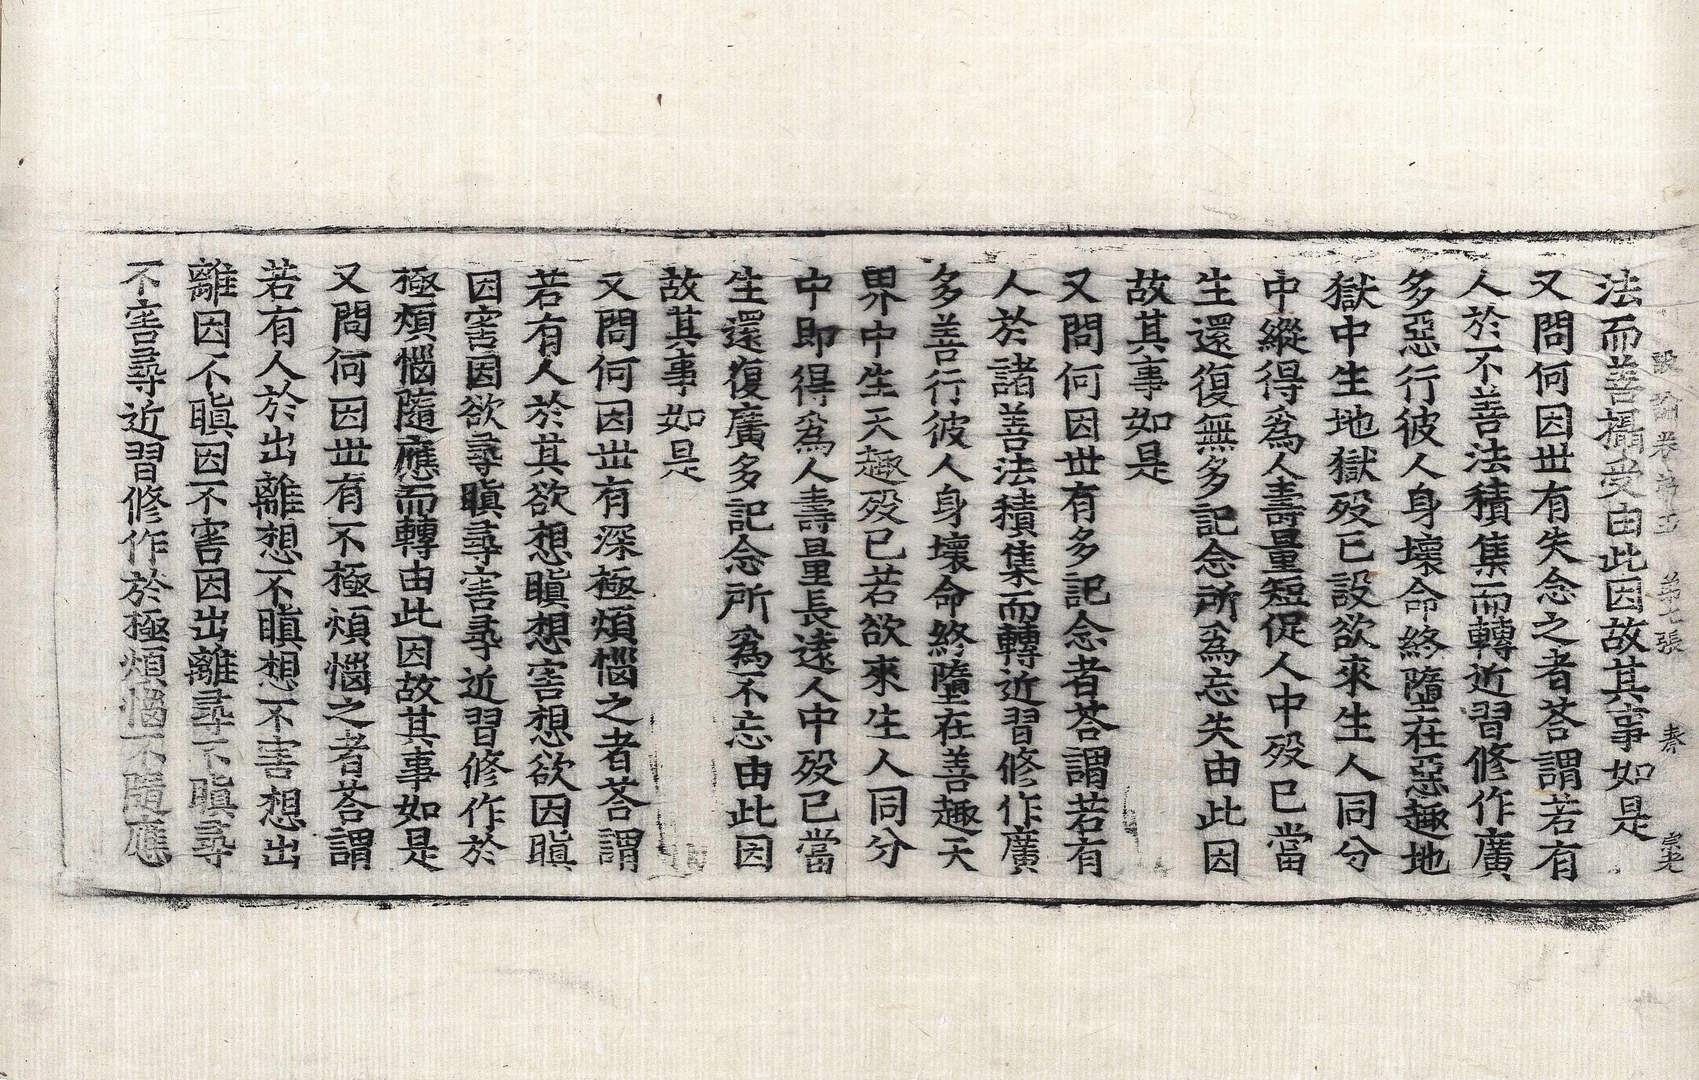 設論卷第五 第七張 春
法而善攝受由此因故其事如是
又問何因丗有失念之者荅謂若有
人於不善法積集而轉近習修作廣
多惡行彼人身壞命終墮在惡趣地
獄中生地獄歿已設欲來生人同分
中縱得爲人壽量短促人中歿已當
生還復無多記念所爲忘失由此因
故其事如是
又問何因丗有多記念者荅謂若有
人於諸善法積集而轉近習修作廣
多善行彼人身壞命終墮在善趣天
界中生天趣歿已若欲來生人同分
中即得爲人壽量長遠人中歿已當
生還復廣多記念所爲不忘由此因
故其事如是
又問何因丗有深極煩惱之者荅謂
若有人於其欲想瞋想害想欲因瞋
因害因欲尋瞋尋害尋近習修作於
極煩惱隨應而轉由此因故其事如是
又問何因丗有不極煩惱之者荅謂
若有人於出離想不瞋想不害想出
離因不瞋因不害因出離尋不瞋尋
不害尋近習修作於極煩惱不隨應